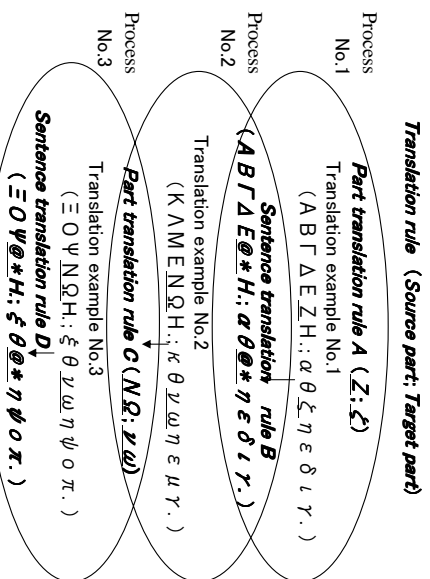 Translation rule (Source part; Target part)
Process No.1
Part translation rule A (Z; ζ)
Translation example No.1
(ΑΒΓΔΕΖΗ.; αθζηεδιγ.)
Process No.2
Sentence translation rule B
(ΑΒΓΔΕ@*Η.; αθ@*ηεδιγ.)
Translation example No.2
(ΚΛΜΕΝΩΗ.; κθνωηεμγ.)
Process No.3
Part translation rule C (ΝΩ; νω)
Translation example No.3
(ΞΟΨΝΩΗ.; ξθνωηψοπ.)
Sentence translation rule D
(ΞΟΨ@*Η.; ξθ@*ηψοπ.)